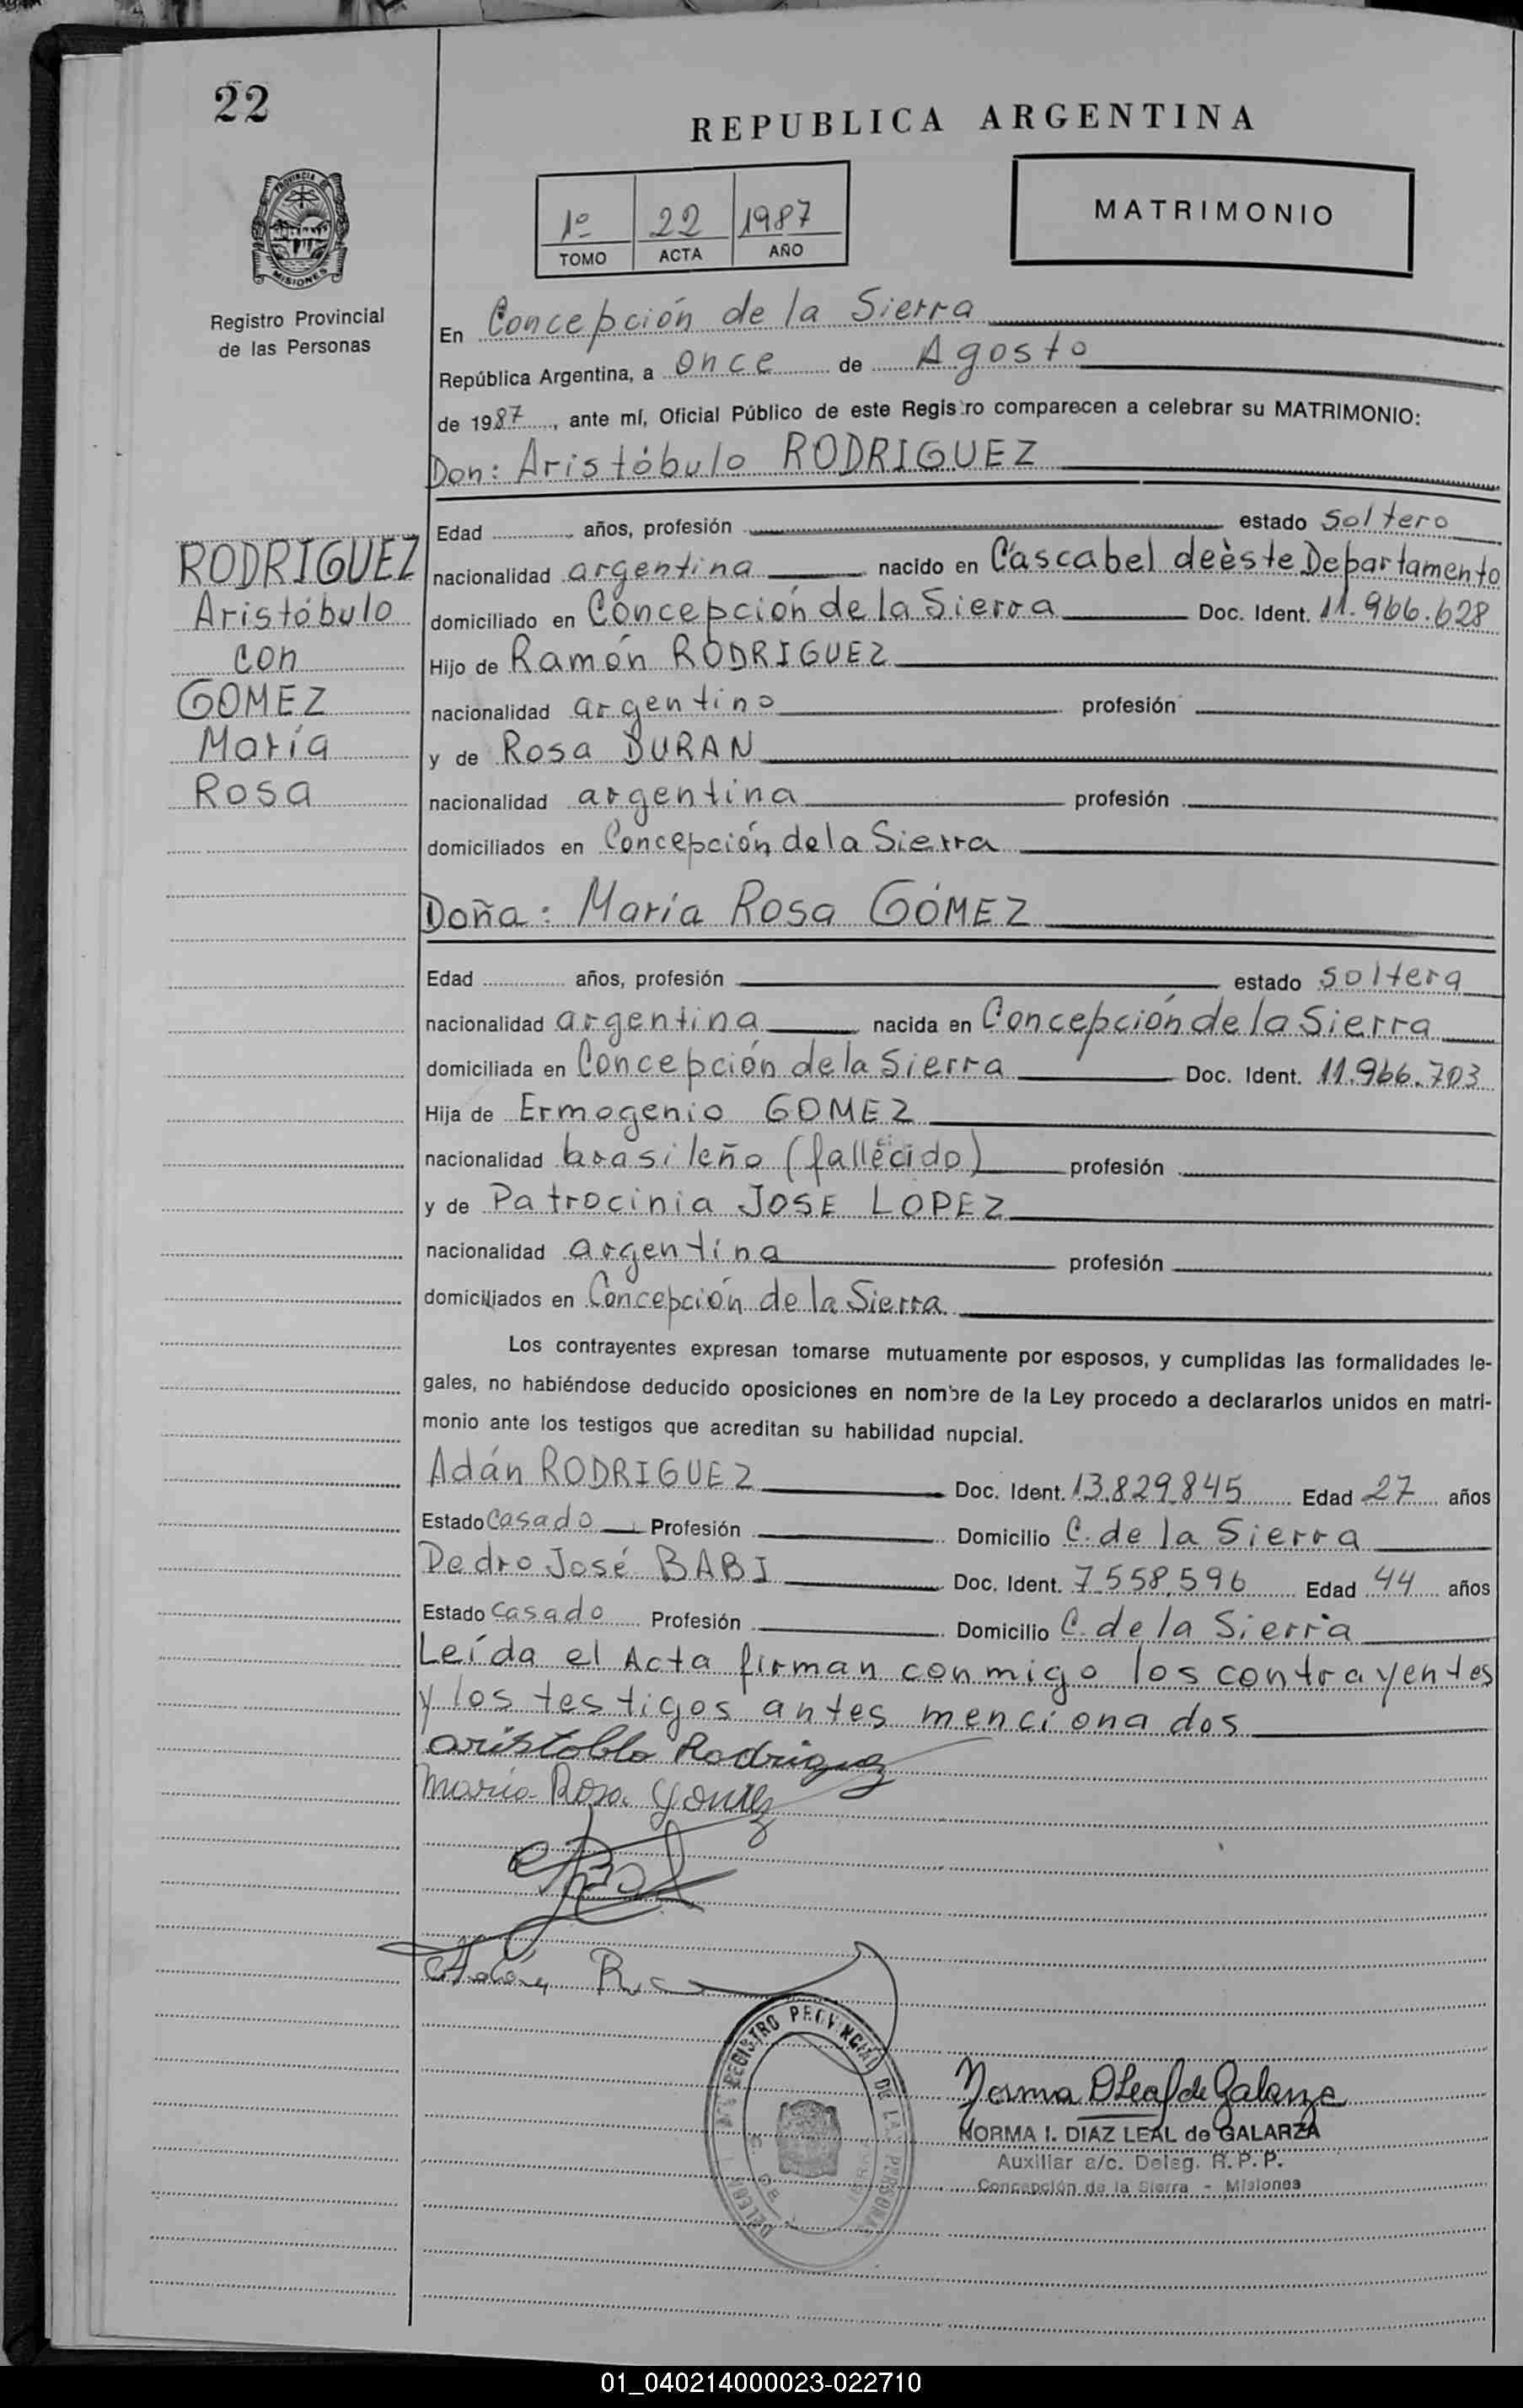 22
REPUBLICA ARGENTINA
PROVINCIA DE
MISIONES
Registro Provincial
de las Personas
1º 22 1987
TOMO ACTA AÑO
MATRIMONIO
En Concepción de la Sierra
República Argentina, a once de Agosto
de 1987, ante mí, Oficial Público de este Registro comparecen a celebrar su MATRIMONIO:
Don: Aristóbulo RODRIGUEZ
RODRIGUEZ
Aristóbulo
con
GOMEZ
María
Rosa
Edad años, profesión estado soltero
nacionalidad argentina nacido en Cascabel de èste Departamento
domiciliado en Concepción de la Sierra Doc. Ident. 11.966.628
Hijo de Ramón RODRIGUEZ
nacionalidad argentino profesión
y de Rosa DURAN
nacionalidad argentina profesión
domiciliados en Concepción de la Sierra
Doña: María Rosa GÓMEZ
Edad años, profesión estado soltera
nacionalidad argentina nacida en Concepción de la Sierra
domiciliada en Concepción de la Sierra Doc. Ident. 11.966.703
Hija de Ermogenio GOMEZ
nacionalidad brasileño (fallecido) profesión
y de Patrocinia JOSE LOPEZ
nacionalidad argentina profesión
domiciliados en Concepción de la Sierra
Los contrayentes expresan tomarse mutuamente por esposos, y cumplidas las formalidades le-
gales, no habiéndose deducido oposiciones en nombre de la Ley procedo a declararlos unidos en matri-
monio ante los testigos que acreditan su habilidad nupcial.
Adán RODRIGUEZ Doc. Ident. 13.829.845 Edad 27 años
Estado Casado Profesión Domicilio C. de la Sierra
Pedro José BABI Doc. Ident. 7.558.596 Edad 44 años
Estado Casado Profesión Domicilio C. de la Sierra
Leída el Acta firman conmigo los contrayentes
y los testigos antes mencionados
aristoblo Rodriguez
maria Rosa Gomez
Adán
REGISTRO PROVINCIAL DE LAS PERSONAS
Norma D Leal de Galarza
NORMA I. DIAZ LEAL de GALARZA
Auxiliar a/c. Deleg. R. P. P.
Concepción de la Sierra - Misiones
01_040214000023-022710